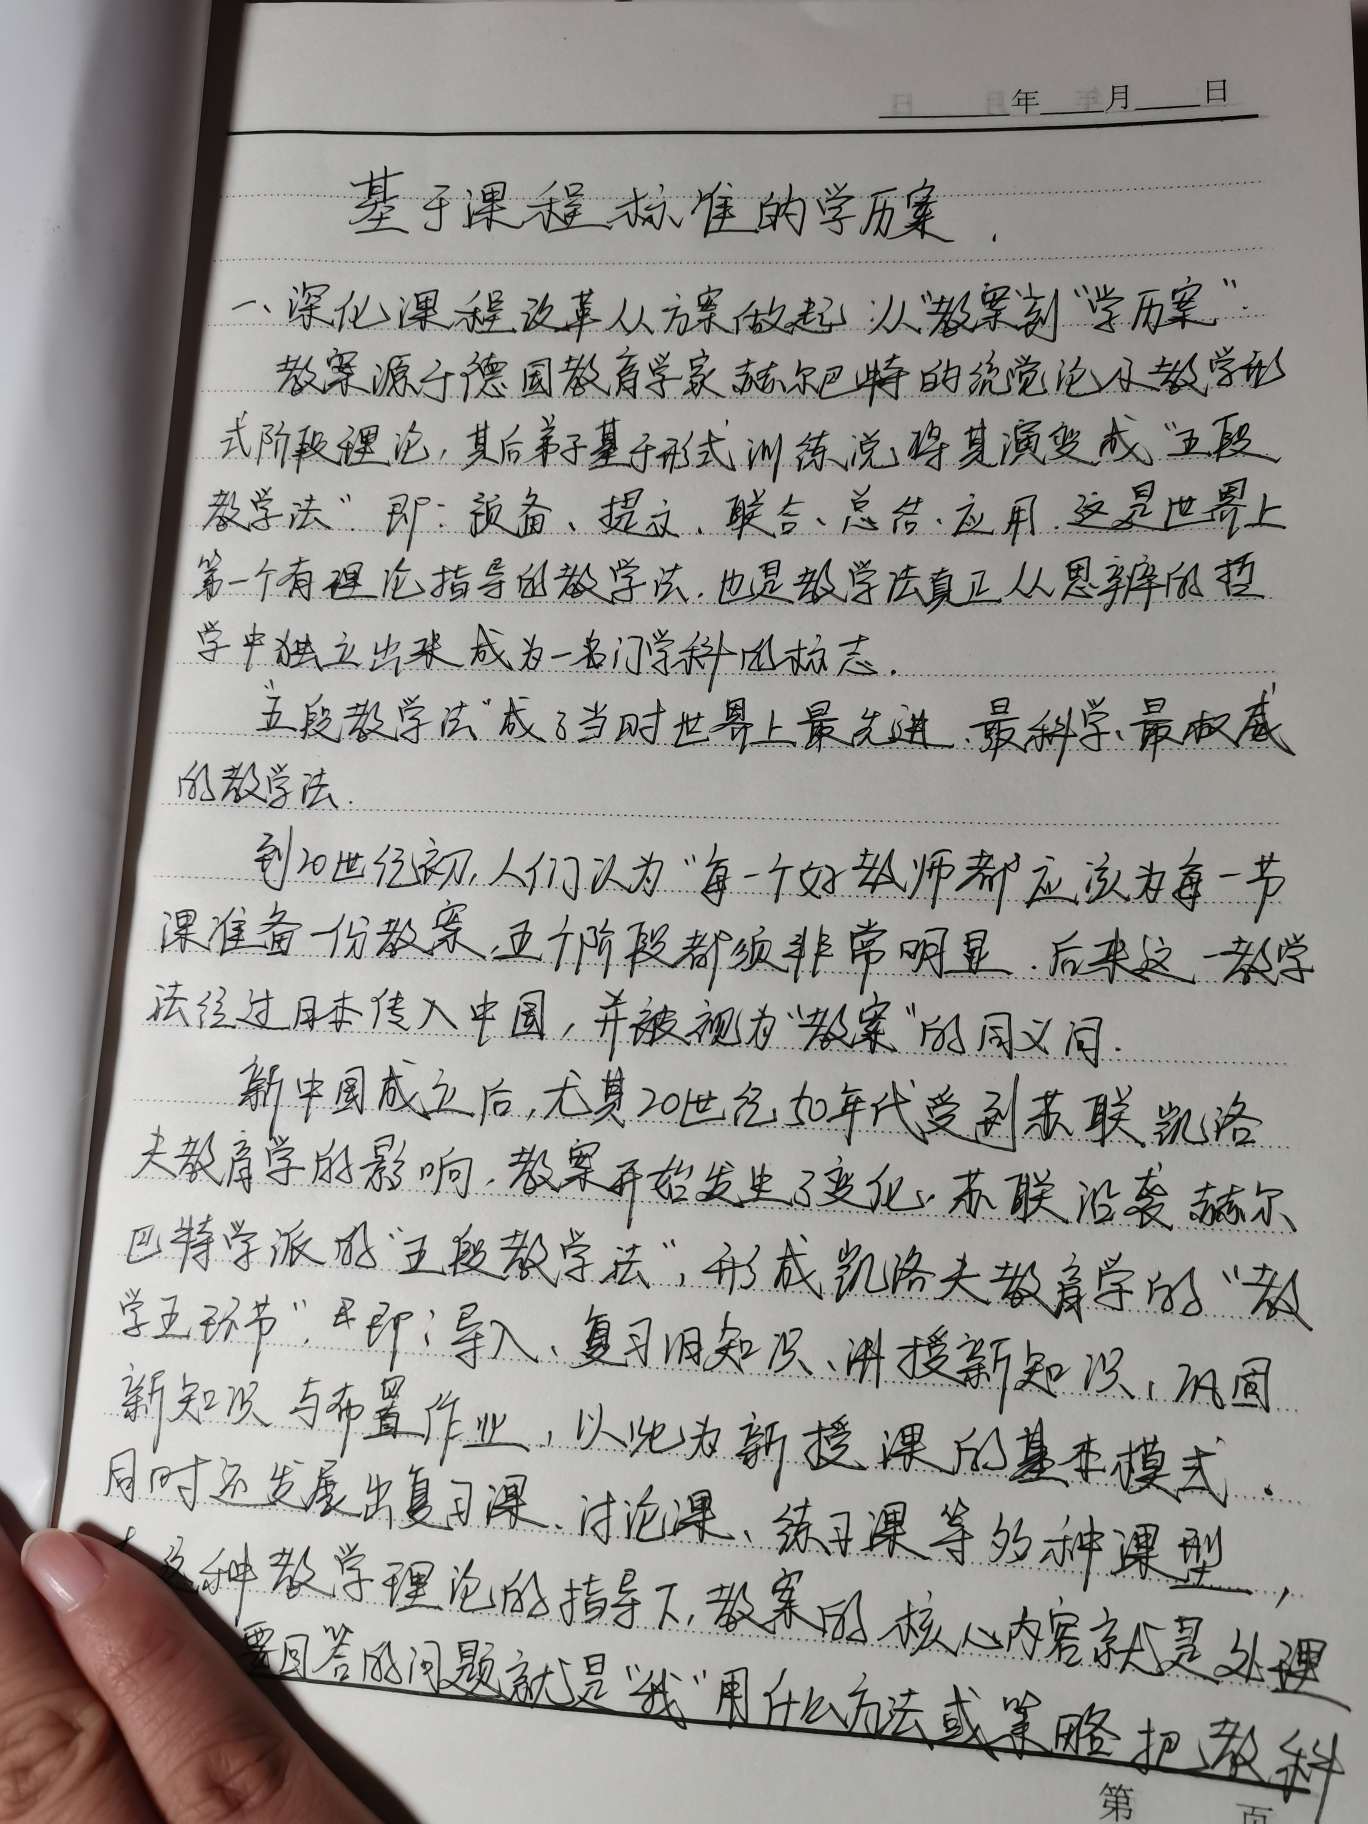 年 月 日
基于课程标准的学历案.
一、深化课程改革从方案做起:从"教案"到"学历案".
教案源于德国教育学家赫尔巴特的统觉论及教学形
式阶段理论,其后弟子基于形式训练说将其演变成"五段
教学法".即:预备、提示、联合、总结、应用.这是世界上
第一个有理论指导的教学法.也是教学法真正从思辨的哲
学中独立出来成为一名门学科的标志.
"五段教学法"成了当时世界上最先进、最科学、最权威
的教学法.
到20世纪初,人们认为"每一个好教师都应该为每一节
课准备一份教案,五个阶段都须非常明显.后来这一教学
法经过日本传入中国,并被视为"教案"的同义词.
新中国成立后,尤其20世纪50年代受到苏联凯洛
夫教育学的影响.教案开始发生了变化.苏联沿袭赫尔
巴特学派的"五段教学法",形成凯洛夫教育学的"教
学五环节".即:导入、复习旧知识、讲授新知识,巩固
新知识与布置作业,以此为新授课的基本模式.
同时还发展出复习课、讨论课、练习课等多种课型,
种教学理论的指导下,教案的核心内容就是处理
要回答的问题就是"我"用什么方法或策略把教科
第 页